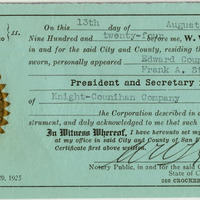 ss. On this 13th day of August
Nine Hundred and twenty-four before me, W. W
in and for the said City and County, residing th
sworn, personally appeared Edward Coun
Frank A. St
President and Secretary
Knight-Counihan Company
the Corporation described in
strument, and duly acknowledged to me such
In Witness Whereof, I have hereunto set my
at my office in said City and County of San F
Certificate first above written.
Notary Public, in and for the said
State of C
1925
see CROCKER